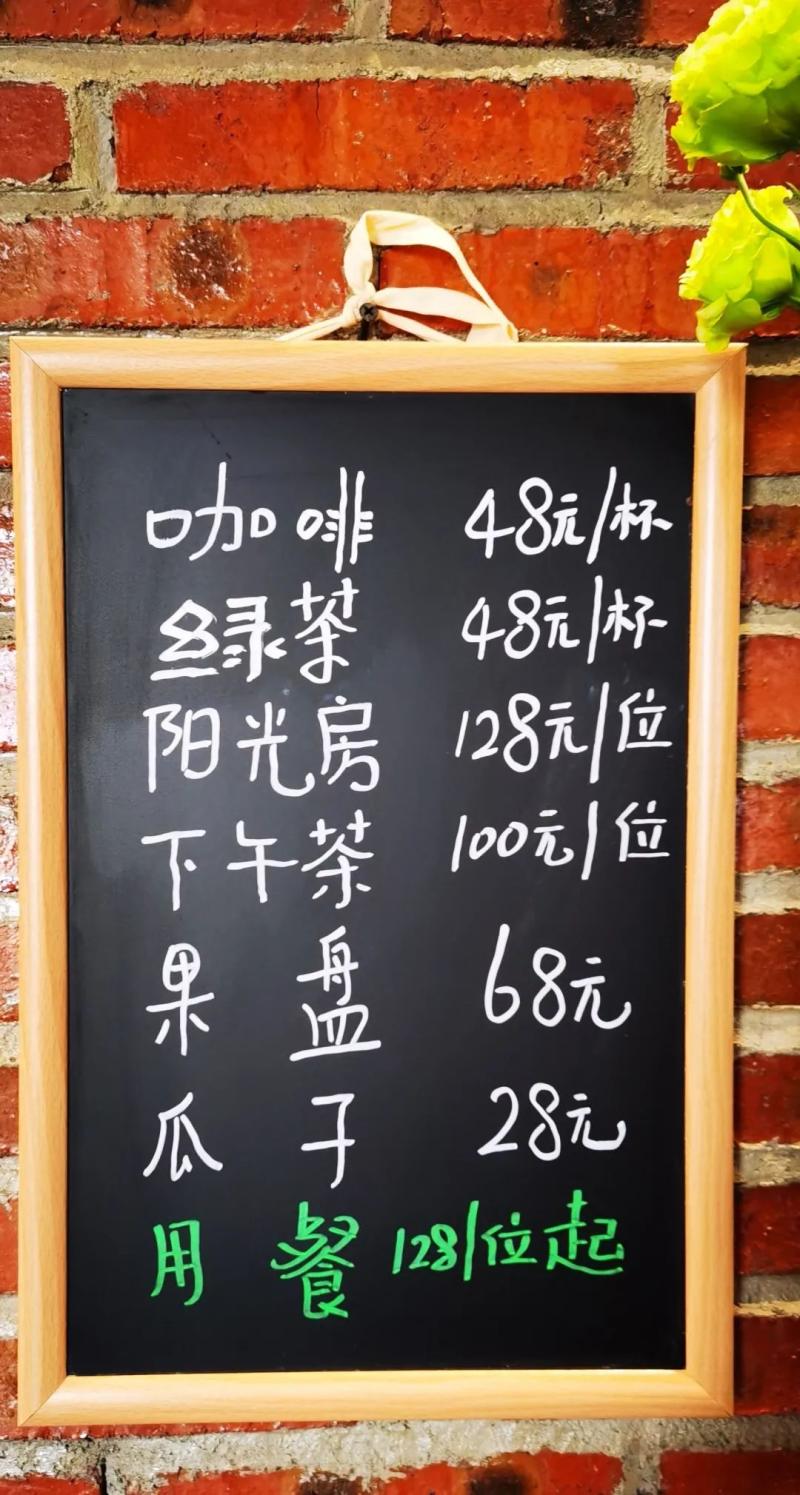 咖啡 48元/杯
绿茶 48元/杯
阳光房 128元/位
下午茶 100元/位
果盘 68元
瓜子 28元
用餐 128/位起